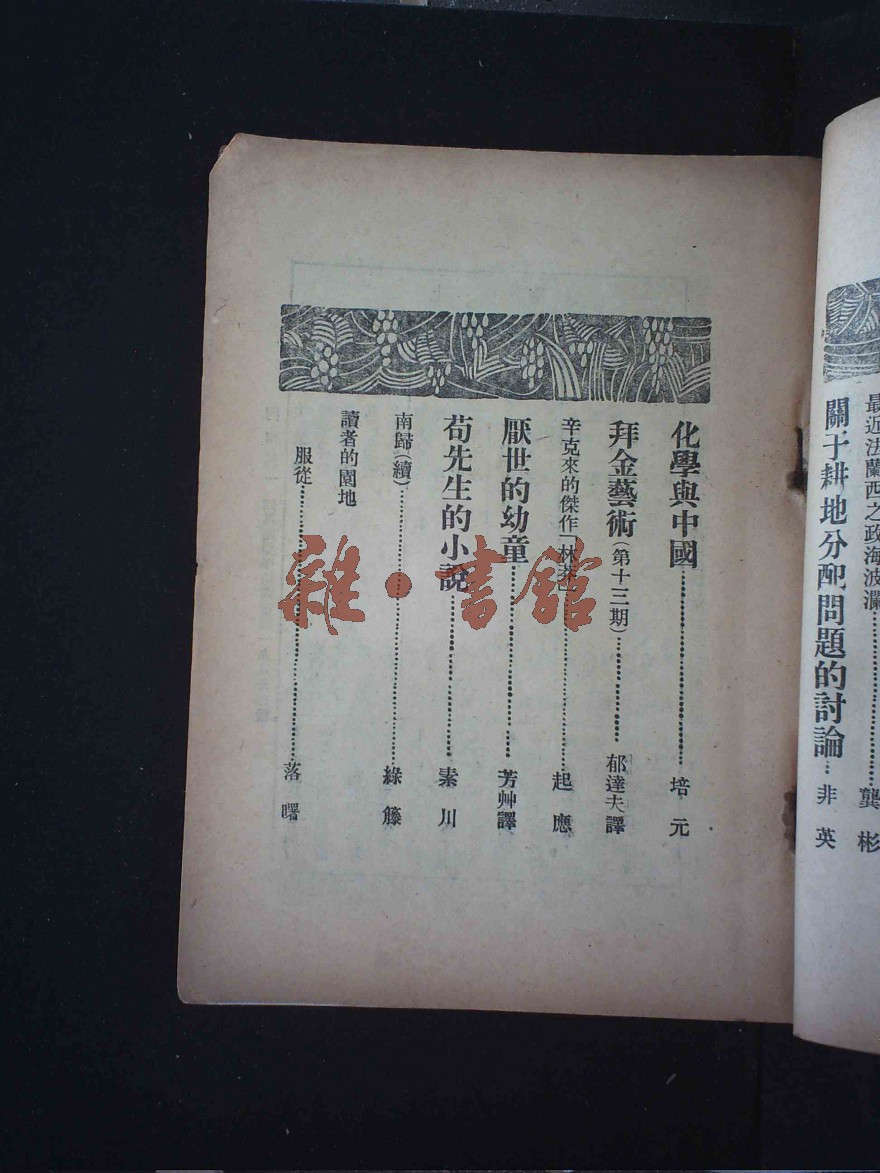 最近法蘭西之政海波瀾……龔彬
關于耕地分配問題的討論…非英
化學與中國……培元
拜金藝術（第十三期）……郁達夫譯
辛克來的傑作「林莽」……起應
厭世的幼童……芳艸譯
苟先生的小說……素川
南歸（續）……綠籐
讀者的園地
服從……落曙
雜·書館